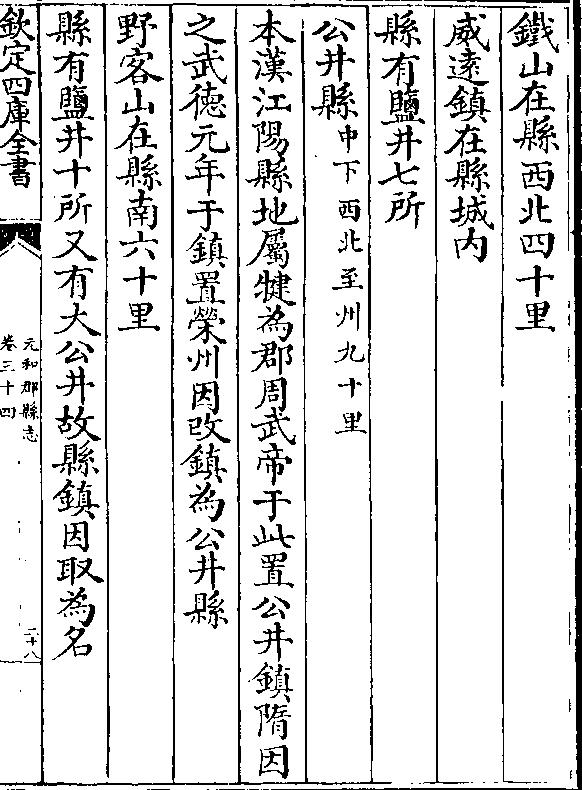 鐵山在縣西北四十里
威遠鎮在縣城内
縣有鹽井七所
公井縣中下西北至州九十里
本漢江陽縣地屬犍為郡周武帝于此置公井鎮隋因
之武徳元年于鎮置榮州因改鎮為公井縣
野客山在縣南六十里
縣有鹽井十所又有大公井故縣鎮因取為名
欽定四庫全書
元和郡縣志
卷三十四
二十八